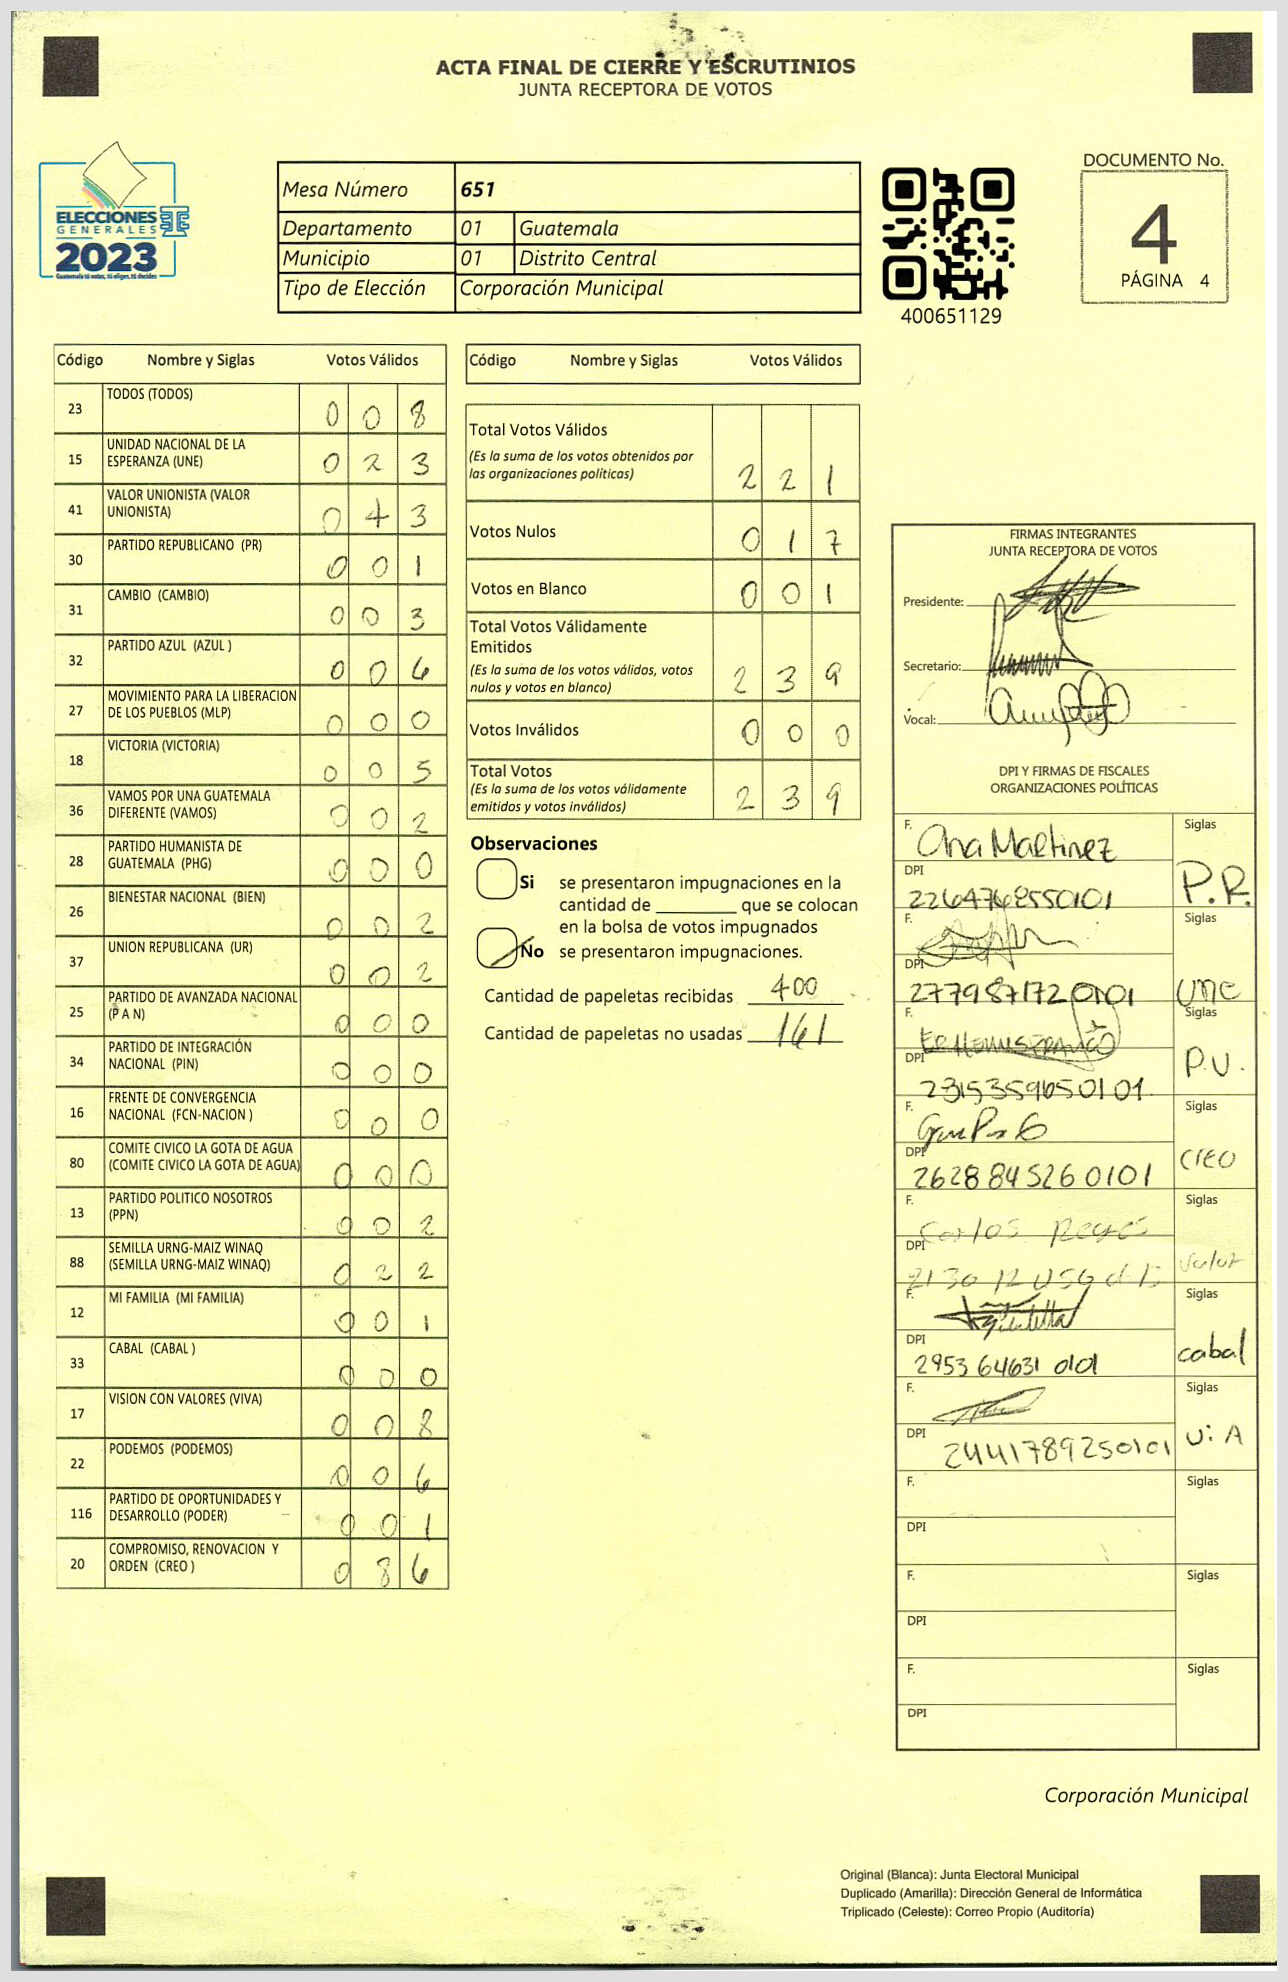 ACTA FINAL DE CIERRE Y ESCRUTINIOS
JUNTA RECEPTORA DE VOTOS
ELECCIONES
GENERALES
2023
Guatemala tú votas, tú eliges, tú decides
Mesa Número 651
Departamento 01 Guatemala
Municipio 01 Distrito Central
Tipo de Elección Corporación Municipal
400651129
DOCUMENTO No.
4
PÁGINA 4
Código Nombre y Siglas Votos Válidos
23 TODOS (TODOS) 0 0 8
15 UNIDAD NACIONAL DE LA
ESPERANZA (UNE) 0 2 3
41 VALOR UNIONISTA (VALOR
UNIONISTA) 0 4 3
30 PARTIDO REPUBLICANO (PR) 0 0 1
31 CAMBIO (CAMBIO) 0 0 3
32 PARTIDO AZUL (AZUL ) 0 0 6
27 MOVIMIENTO PARA LA LIBERACION
DE LOS PUEBLOS (MLP) 0 0 0
18 VICTORIA (VICTORIA) 0 0 5
36 VAMOS POR UNA GUATEMALA
DIFERENTE (VAMOS) 0 0 2
28 PARTIDO HUMANISTA DE
GUATEMALA (PHG) 0 0 0
26 BIENESTAR NACIONAL (BIEN) 0 0 2
37 UNION REPUBLICANA (UR) 0 0 2
25 PARTIDO DE AVANZADA NACIONAL
(P A N) 0 0 0
34 PARTIDO DE INTEGRACIÓN
NACIONAL (PIN) 0 0 0
16 FRENTE DE CONVERGENCIA
NACIONAL (FCN-NACION ) 0 0 0
80 COMITE CIVICO LA GOTA DE AGUA
(COMITE CIVICO LA GOTA DE AGUA) 0 0 0
13 PARTIDO POLITICO NOSOTROS
(PPN) 0 0 2
88 SEMILLA URNG-MAIZ WINAQ
(SEMILLA URNG-MAIZ WINAQ) 0 2 2
12 MI FAMILIA (MI FAMILIA) 0 0 1
33 CABAL (CABAL ) 0 0 0
17 VISION CON VALORES (VIVA) 0 0 8
22 PODEMOS (PODEMOS) 0 0 6
116 PARTIDO DE OPORTUNIDADES Y
DESARROLLO (PODER) 0 0 1
20 COMPROMISO, RENOVACION Y
ORDEN (CREO ) 0 8 6
Código Nombre y Siglas Votos Válidos
Total Votos Válidos
(Es la suma de los votos obtenidos por
las organizaciones políticas) 2 2 1
Votos Nulos 0 1 7
Votos en Blanco 0 0 1
Total Votos Válidamente
Emitidos
(Es la suma de los votos válidos, votos
nulos y votos en blanco) 2 3 9
Votos Inválidos 0 0 0
Total Votos
(Es la suma de los votos válidamente
emitidos y votos inválidos) 2 3 9
Observaciones
Si se presentaron impugnaciones en la
cantidad de ________ que se colocan
en la bolsa de votos impugnados
No se presentaron impugnaciones.
Cantidad de papeletas recibidas 400
Cantidad de papeletas no usadas 161
FIRMAS INTEGRANTES
JUNTA RECEPTORA DE VOTOS
Presidente:
Secretario:
Vocal:
DPI Y FIRMAS DE FISCALES
ORGANIZACIONES POLÍTICAS
F. Ana Martinez Siglas
DPI P.R.
2264768550101
F. Siglas
DPI
2779871720101 UNE
F. Siglas
DPI P.U.
2315359650101
F. Siglas
DPI CREO
2628845260101
F. Carlos Reyes Siglas
DPI Valor
F. Siglas
DPI cabal
2953 64631 0101
F. Siglas
DPI
2441789250101
F. Siglas
DPI
F. Siglas
DPI
F. Siglas
DPI
Corporación Municipal
Original (Blanca): Junta Electoral Municipal
Duplicado (Amarilla): Dirección General de Informática
Triplicado (Celeste): Correo Propio (Auditoría)